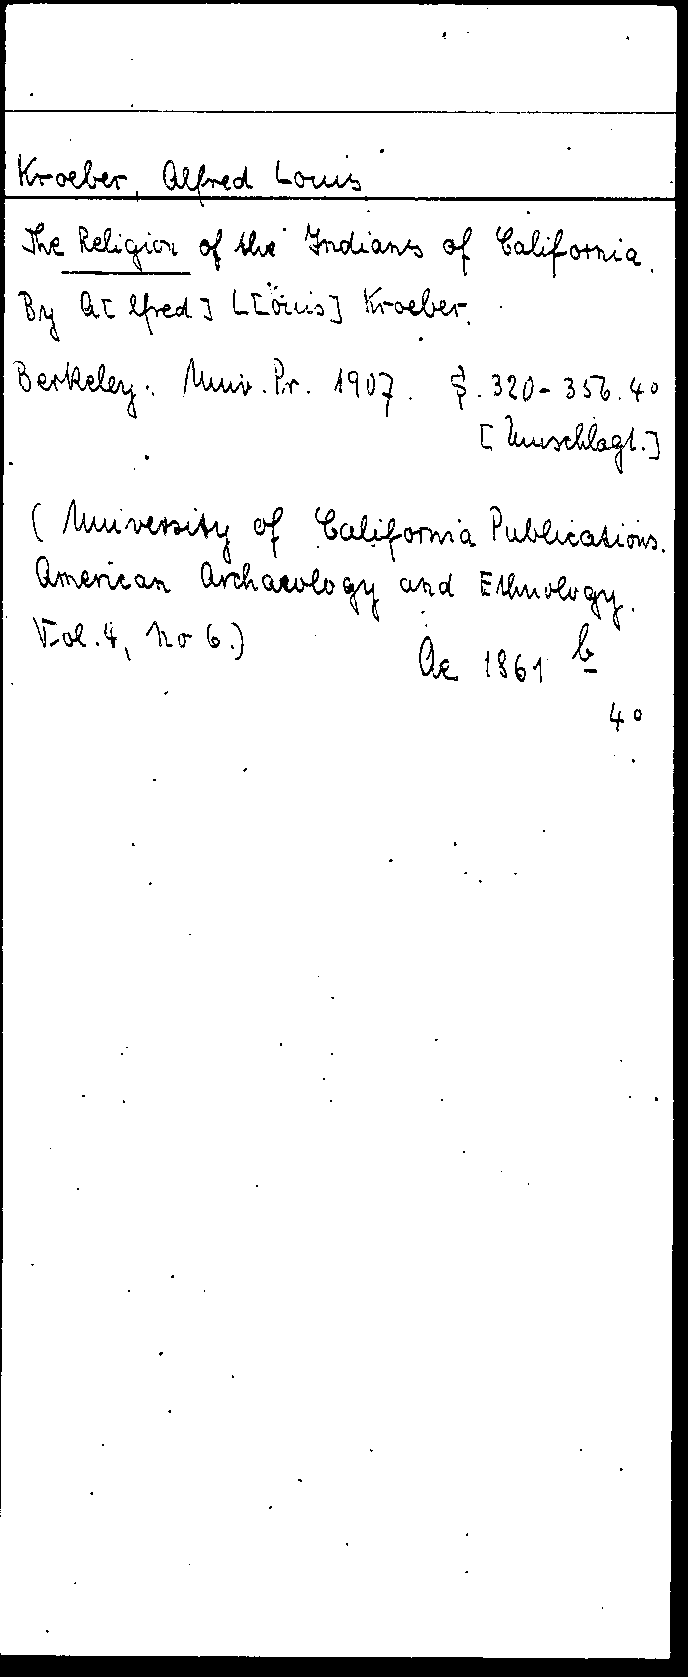 Kroeber, Alfred Louis
The Religion of the Indians of California.
By A[lfred] L[ouis] Kroeber.
Berkeley: Univ. Pr. 1907. S. 320-356. 4°
[Umschlagt.]
(University of California Publications.
American Archaeology and Ethnology.
Vol. 4, No 6.)
Ae 1861 b
4°